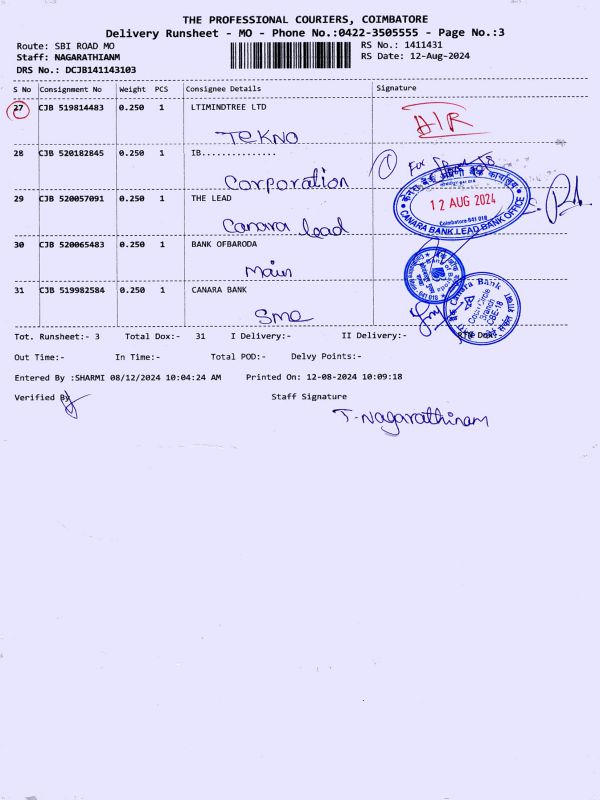 THE PROFESSIONAL COURIERS, COIMBATORE
Delivery Runsheet - MO - Phone No.:0422-3505555 - Page No.:3
Route: SBI ROAD MO
Staff: NAGARATHIANM
DRS No.: DCJB141143103
RS No.: 1411431
RS Date: 12-Aug-2024
S No Consignment No Weight PCS Consignee Details Signature
27 CJB 519814483 0.250 1 LTIMINDTREE LTD
TEKNO
AIR
28 CJB 520182845 0.250 1 IB...............
Corporation
For
29 CJB 520057091 0.250 1 THE LEAD
Canara lead
12 AUG 2024
Coimbatore-641 018
CANARA BANK LEAD BANK OFFICE
30 CJB 520065483 0.250 1 BANK OFBARODA
Main
31 CJB 519982584 0.250 1 CANARA BANK
SME
Canara Bank
Branch
CBE-18
Tot. Runsheet:- 3 Total Dox:- 31 I Delivery:- II Delivery:-
Out Time:- In Time:- Total POD:- Delvy Points:-
Entered By :SHARMI 08/12/2024 10:04:24 AM Printed On: 12-08-2024 10:09:18
Verified By
Staff Signature
T. Nagarathinam